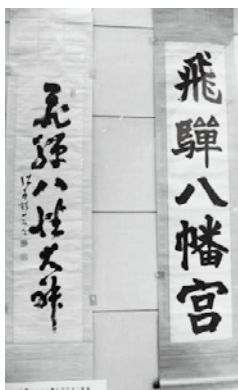 飛騨八幡宮
飛騨八幡大神